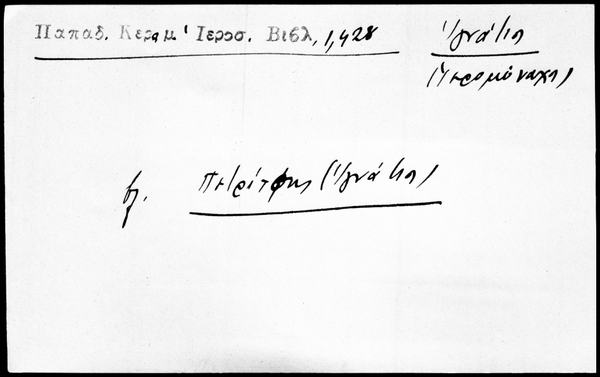 Παπαδ. Κεραμ' Ιεροσ. Βιβλ, 1, 428
Ἰγνάτιος
(Ἱερομόναχος)
βλ. Πετρίτσης (Ἰγνάτιος)